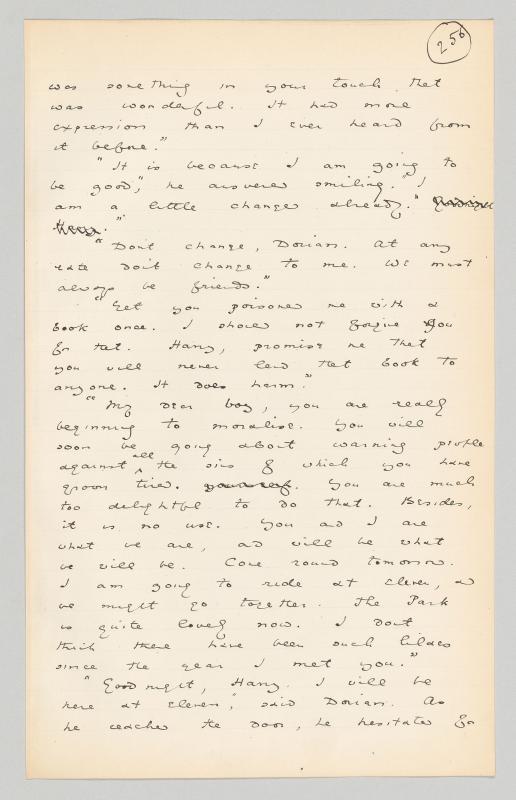 256
was something in your touch that
was wonderful. It had more
expression than I ever heard from
it before."
"It is because I am going to
be good," he answered smiling. "I
am a little changed already."
"Dont change, Dorian. At any
rate don't change to me. We must
always be friends."
"Yet you poisoned me with a
book once. I should not forgive you
for that. Harry, promise me that
you will never lend that book to
anyone. It does harm."
"My dear boy, you are really
beginning to moralise. You will
soon be going about warning people
against all the sins of which you have
grown tired. yourself. You are much
too delightful to do that. Besides,
it is no use. You and I are
what we are, and will be what
we will be. Come round tomorrow.
I am going to ride at eleven, and
we might go together. The Park
is quite lovely now. I dont
think there have been such lilacs
since the year I met you."
"Good night, Harry. I will be
here at eleven," said Dorian. As
he reached the door, he hesitated for